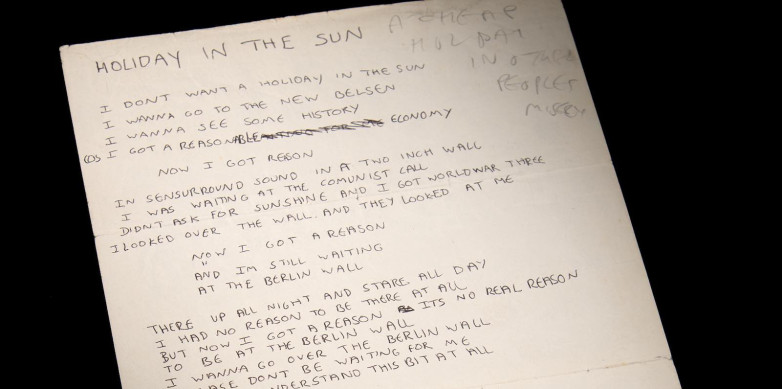 HOLIDAY IN THE SUN
A CHEAP
HOLIDAY
IN OTHER
PEOPLES
MISERY
I DONT WANT A HOLIDAY IN THE SUN
I WANNA GO TO THE NEW BELSEN
I WANNA SEE SOME HISTORY
COS I GOT A REASONABLE ECONOMY
NOW I GOT REGON
IN SENSURROUND SOUND IN A TWO INCH WALL
I WAS WAITING AT THE COMUNIST CALL
DIDNT ASK FOR SUNSHINE AND I GOT WORLD WAR THREE
I LOOKED OVER THE WALL AND THEY LOOKED AT ME
NOW I GOT A REASON
AND IM STILL WAITING
AT THE BERLIN WALL
THERE UP ALL NIGHT AND STARE ALL DAY
I HAD NO REASON TO BE THERE AT ALL
BUT NOW I GOT A REASON ITS NO REAL REASON
TO BE AT THE BERLIN WALL
I WANNA GO OVER THE BERLIN WALL
DONT BE WAITING FOR ME
THIS BIT AT ALL